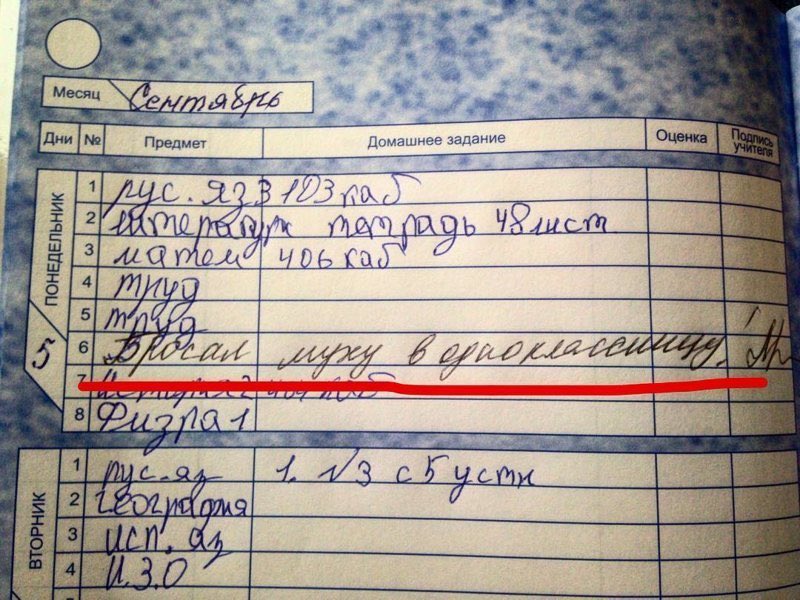 Месяц Сентябрь
Дни № Предмет Домашнее задание Оценка Подпись учителя
ПОНЕДЕЛЬНИК
5
1 рус. яз 3 103 каб
2 литература тетрадь 48 лист
3 матем 406 каб
4 труд
5 труд
6 Бросал муху в одноклассницу!
7 каб
8 Физра 1
ВТОРНИК
1 рус. яз 1. √3 с 5 устн
2 география
3 исп. яз
4 И.З.О